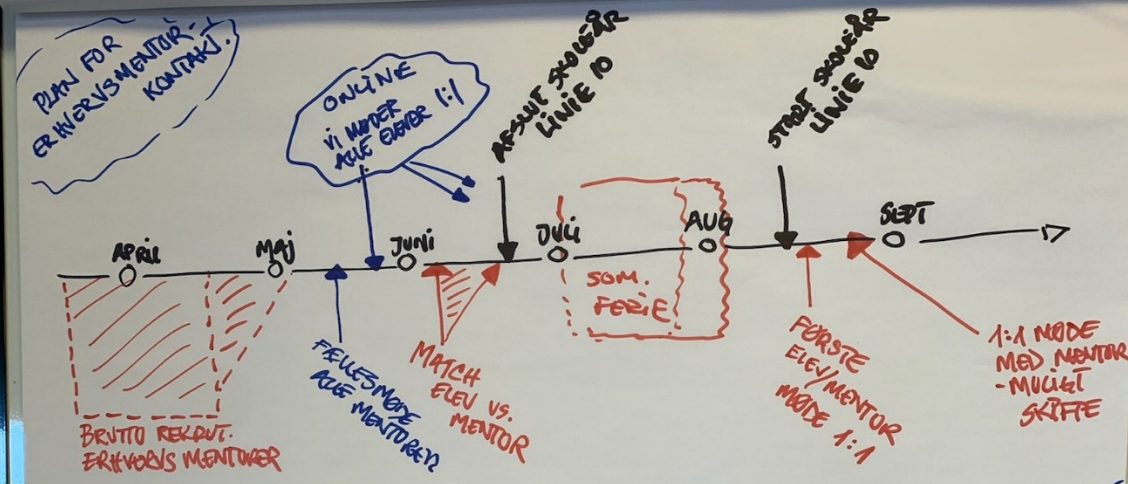 PLAN FOR
ERHVERVSMENTOR-
KONTAKT.
ONLINE
VI MØDER
ALLE ELEVER 1:1
AFSLUT SKOLEÅR
LINIE 10
START SKOLEÅR
LINIE 10
APRIL
MAJ
JUNI
JULI
AUG
SEPT
SOM.
FERIE
BRUTTO REKRUT.
ERHVERVS MENTORER
FÆLLESMØDE
ALLE MENTORER
MATCH
ELEV VS.
MENTOR
FØRSTE
ELEV/MENTOR
MØDE 1:1
1:1 MØDE
MED MENTOR
- MULIGT
SKIFTE